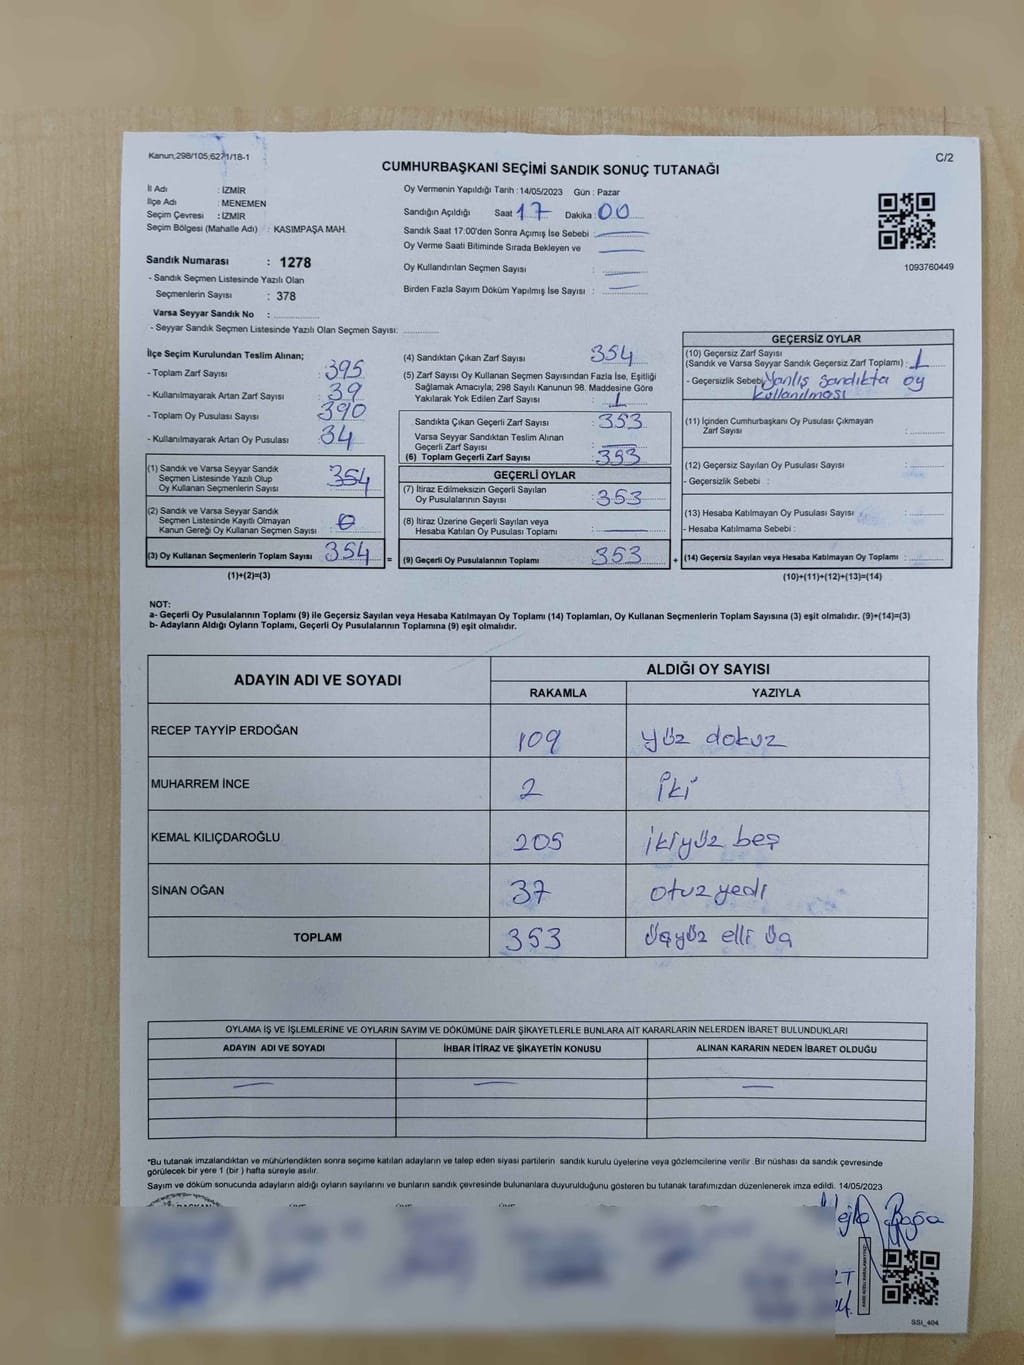 Kanun,298/105,6271/18-1
C/2
CUMHURBAŞKANI SEÇİMİ SANDIK SONUÇ TUTANAĞI
İl Adı : İZMİR
İlçe Adı : MENEMEN
Seçim Çevresi : İZMİR
Seçim Bölgesi (Mahalle Adı) : KASIMPAŞA MAH.
Sandık Numarası : 1278
- Sandık Seçmen Listesinde Yazılı Olan
Seçmenlerin Sayısı : 378
Varsa Seyyar Sandık No :
- Seyyar Sandık Seçmen Listesinde Yazılı Olan Seçmen Sayısı:
Oy Vermenin Yapıldığı Tarih : 14/05/2023 Gün : Pazar
Sandığın Açıldığı Saat 17 Dakika : 00
Sandık Saat 17:00'den Sonra Açımış İse Sebebi :
Oy Verme Saati Bitiminde Sırada Bekleyen ve
Oy Kullandırılan Seçmen Sayısı :
Birden Fazla Sayım Döküm Yapılmış İse Sayısı :
1093760449
İlçe Seçim Kurulundan Teslim Alınan;
- Toplam Zarf Sayısı : 395
- Kullanılmayarak Artan Zarf Sayısı : 39
- Toplam Oy Pusulası Sayısı : 390
- Kullanılmayarak Artan Oy Pusulası : 34
(1) Sandık ve Varsa Seyyar Sandık
Seçmen Listesinde Yazılı Olup
Oy Kullanan Seçmenlerin Sayısı : 354
(2) Sandık ve Varsa Seyyar Sandık
Seçmen Listesinde Kayıtlı Olmayan
Kanun Gereği Oy Kullanan Seçmen Sayısı : 0
(3) Oy Kullanan Seçmenlerin Toplam Sayısı : 354 =
(1)+(2)=(3)
(4) Sandıktan Çıkan Zarf Sayısı : 354
(5) Zarf Sayısı Oy Kullanan Seçmen Sayısından Fazla İse, Eşitliği
Sağlamak Amacıyla; 298 Sayılı Kanunun 98. Maddesine Göre
Yakılarak Yok Edilen Zarf Sayısı : 1
Sandıkta Çıkan Geçerli Zarf Sayısı : 353
Varsa Seyyar Sandıktan Teslim Alınan
Geçerli Zarf Sayısı :
(6) Toplam Geçerli Zarf Sayısı : 353
GEÇERLİ OYLAR
(7) İtiraz Edilmeksizin Geçerli Sayılan
Oy Pusulalarının Sayısı : 353
(8) İtiraz Üzerine Geçerli Sayılan veya
Hesaba Katılan Oy Pusulası Toplamı :
(9) Geçerli Oy Pusulalarının Toplamı : 353 +
GEÇERSİZ OYLAR
(10) Geçersiz Zarf Sayısı
(Sandık ve Varsa Seyyar Sandık Geçersiz Zarf Toplamı) : 1
- Geçersizlik Sebebi: Yanlış sandıkta oy
kullanılması
(11) İçinden Cumhurbaşkanı Oy Pusulası Çıkmayan
Zarf Sayısı :
(12) Geçersiz Sayılan Oy Pusulası Sayısı :
- Geçersizlik Sebebi :
(13) Hesaba Katılmayan Oy Pusulası Sayısı :
- Hesaba Katılmama Sebebi :
(14) Geçersiz Sayılan veya Hesaba Katılmayan Oy Toplamı :
(10)+(11)+(12)+(13)=(14)
NOT:
a- Geçerli Oy Pusulalarının Toplamı (9) ile Geçersiz Sayılan veya Hesaba Katılmayan Oy Toplamı (14) Toplamları, Oy Kullanan Seçmenlerin Toplam Sayısına (3) eşit olmalıdır. (9)+(14)=(3)
b- Adayların Aldığı Oyların Toplamı, Geçerli Oy Pusulalarının Toplamına (9) eşit olmalıdır.
ADAYIN ADI VE SOYADI
ALDIĞI OY SAYISI
RAKAMLA YAZIYLA
RECEP TAYYİP ERDOĞAN 109 yüz dokuz
MUHARREM İNCE 2 iki
KEMAL KILIÇDAROĞLU 205 ikiyüz beş
SİNAN OĞAN 37 otuzyedi
TOPLAM 353 üçyüz elli üç
OYLAMA İŞ VE İŞLEMLERİNE VE OYLARIN SAYIM VE DÖKÜMÜNE DAİR ŞİKAYETLERLE BUNLARA AİT KARARLARIN NELERDEN İBARET BULUNDUKLARI
ADAYIN ADI VE SOYADI İHBAR İTİRAZ VE ŞİKAYETİN KONUSU ALINAN KARARIN NEDEN İBARET OLDUĞU
*Bu tutanak imzalandıktan ve mühürlendikten sonra seçime katılan adayların ve talep eden siyasi partilerin sandık kurulu üyelerine veya gözlemcilerine verilir .Bir nüshası da sandık çevresinde
görülecek bir yere 1 (bir ) hafta süreyle asılır.
Sayım ve döküm sonucunda adayların aldığı oyların sayılarını ve bunların sandık çevresinde bulunanlara duyurulduğunu gösteren bu tutanak tarafımızdan düzenlenerek imza edildi. 14/05/2023
SSİ_404